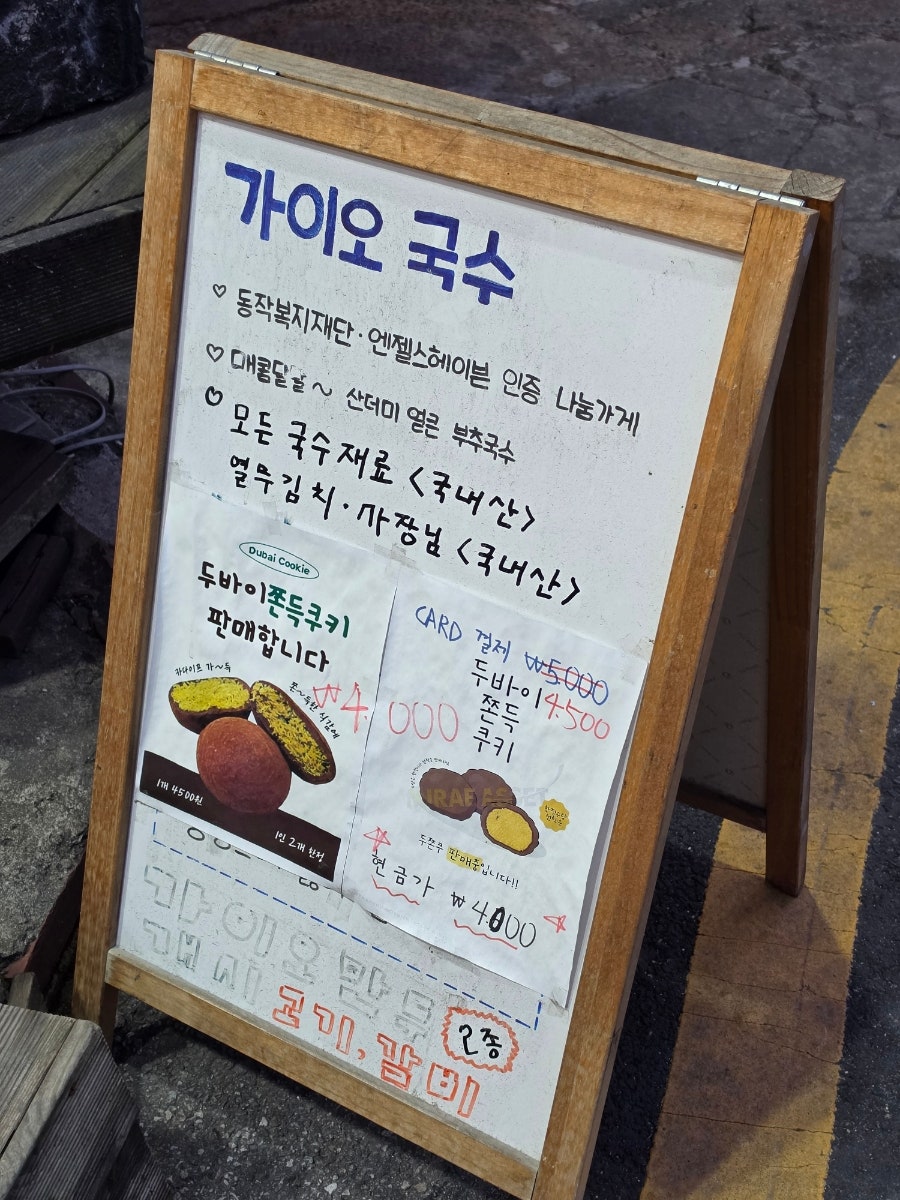 가이오 국수
♡ 동작복지재단·엔젤스헤이븐 인증 나눔가게
♡ 매콤달달~ 산더미 얼큰 부추국수
♡ 모든 국수재료 <국내산>
열무김치·사장님 <국내산>
Dubai Cookie
두바이쫀득쿠키
판매합니다
카다이프 가~득
쫀~득한 식감에
₩4.000
1개 4500원
1인 2개 한정
CARD 결제 ₩5000
4.500
두바이
쫀득
쿠키
두쫀쿠 판매중입니다!!
현금가 ₩4.000
가이오 만두
개시
고기, 갈비
2종